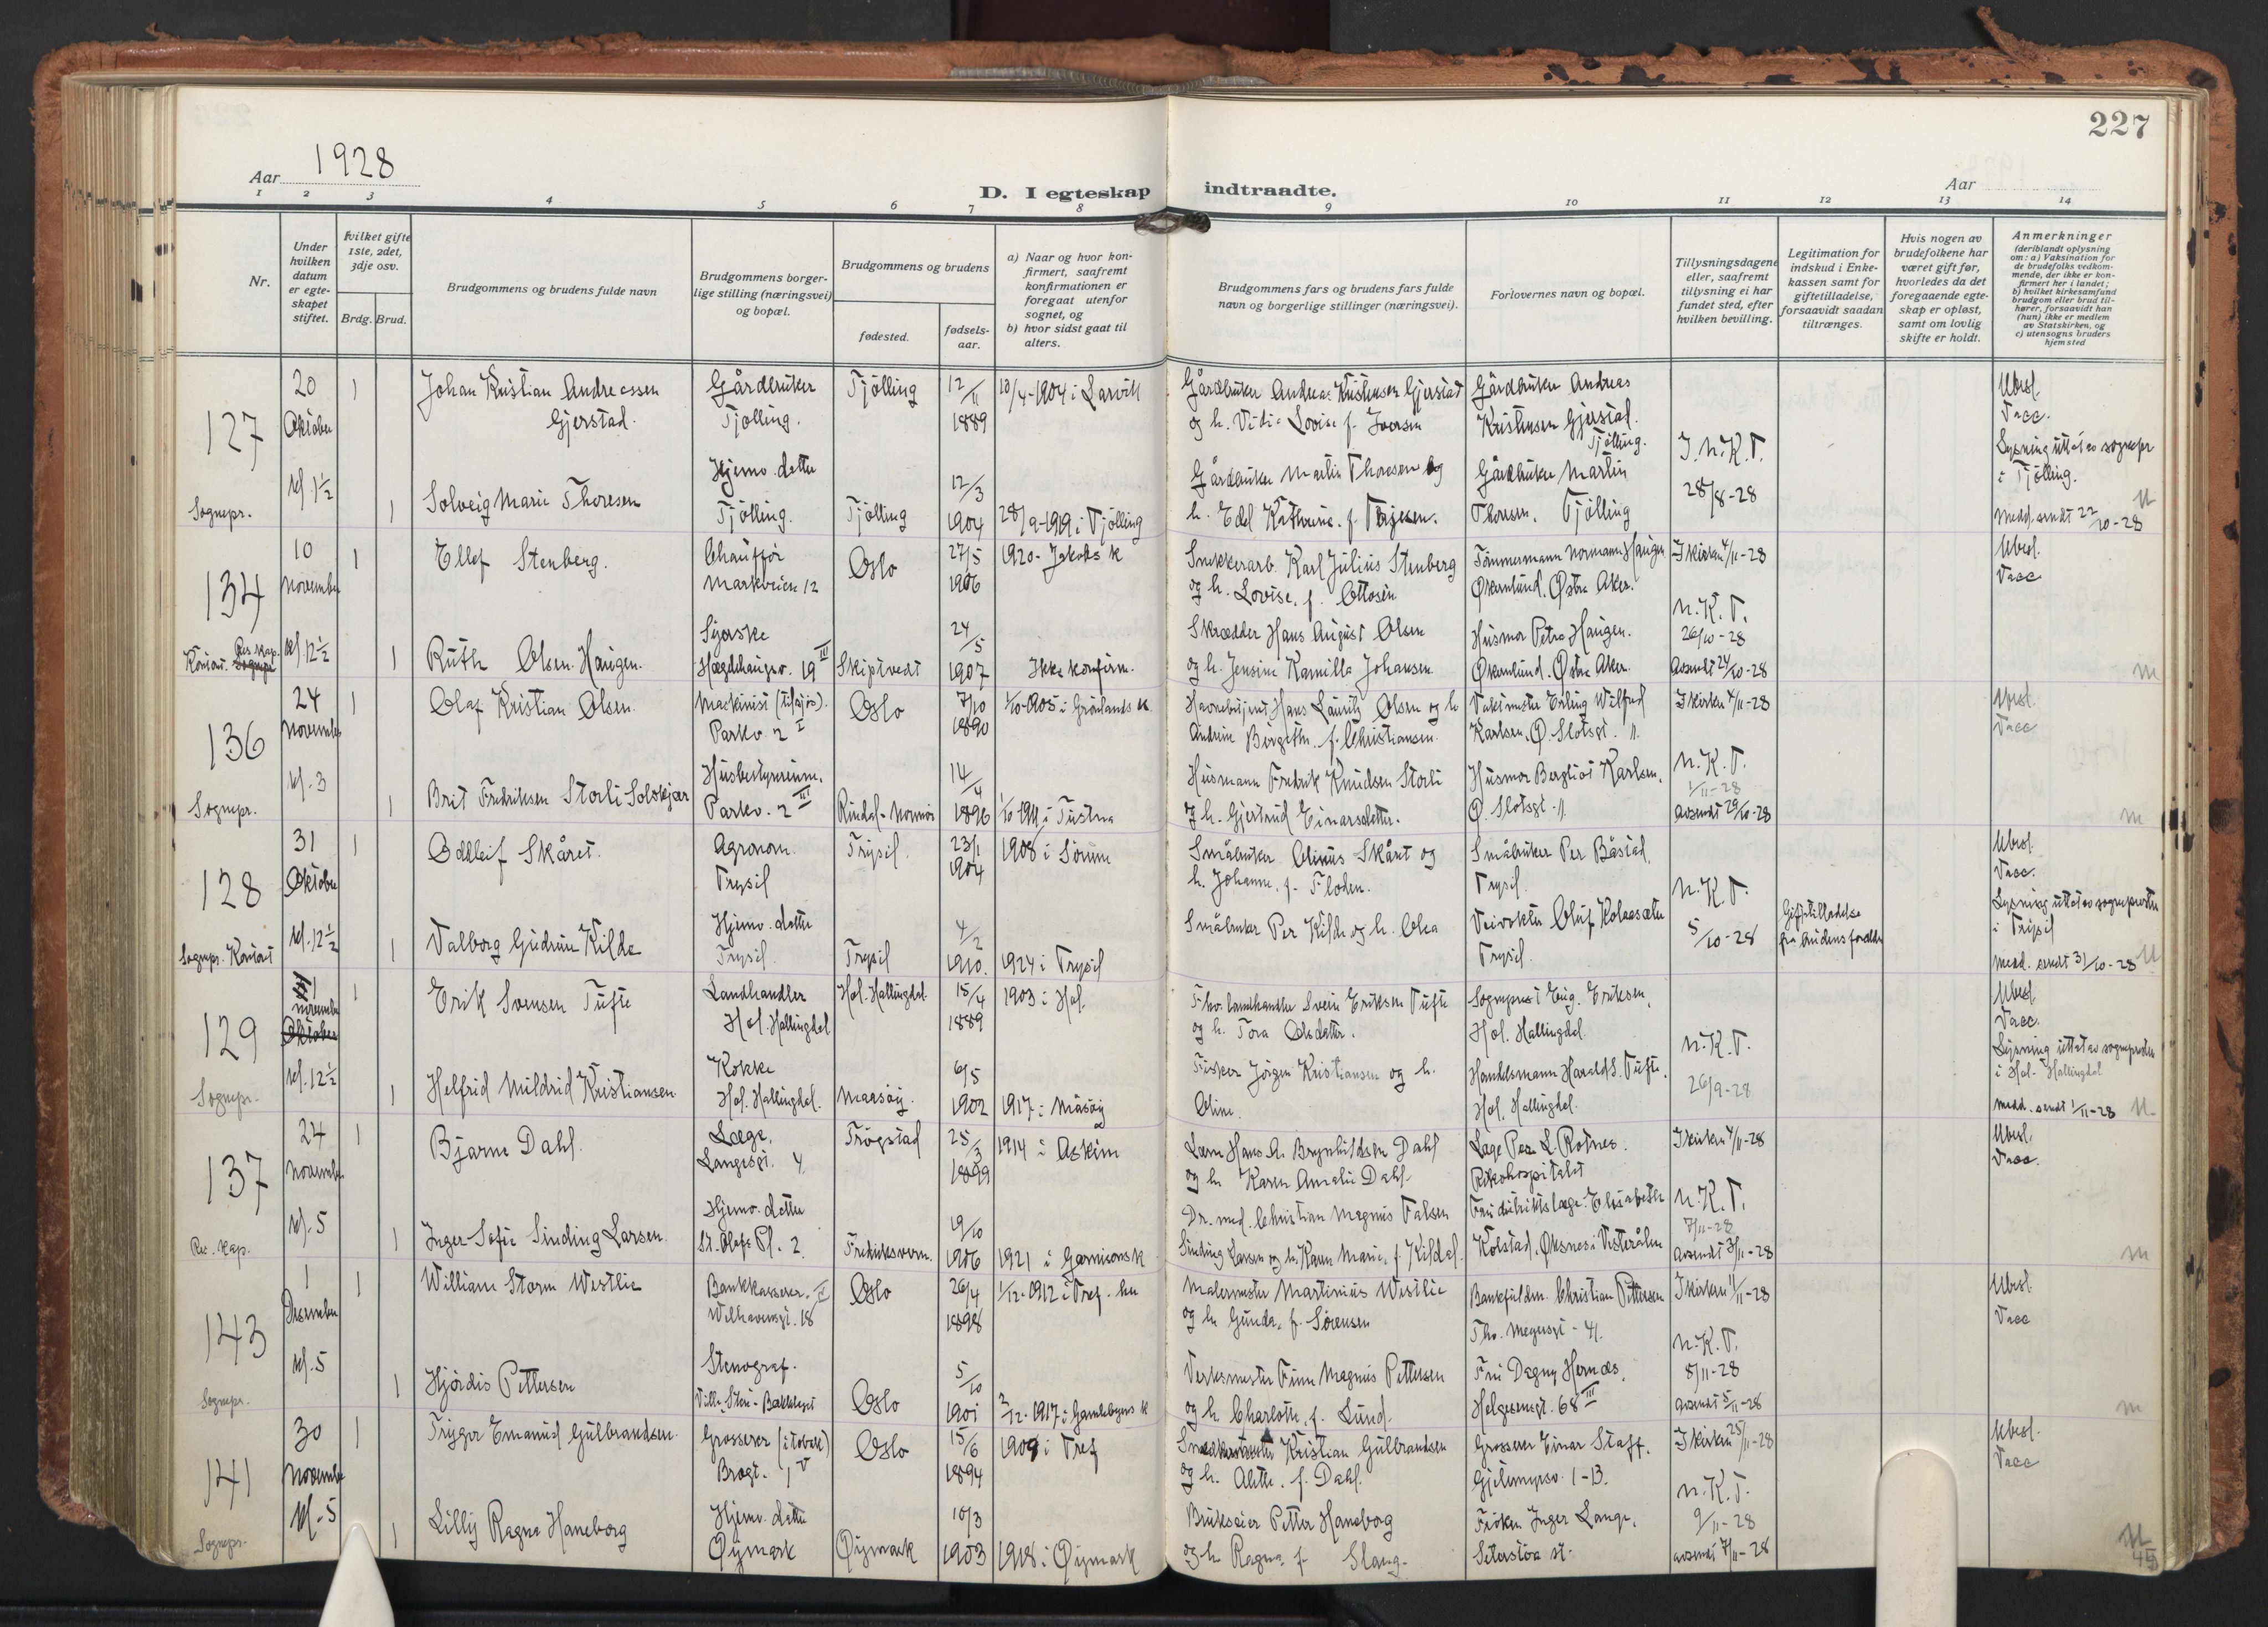 227
Aar 1928
D. I egteskap indtraadte.
Aar
1 2 3 4 5 6 7 8 9 10 11 12 13 14
Nr.
Under hvilken datum er egteskapet stiftet.
hvilket gifte 1ste, 2det, 3dje osv.
Brdg. Brud.
Brudgommens og brudens fulde navn
Brudgommens borgerlige stilling (næringsvei) og bopæl.
Brudgommens og brudens
fødested.
fødselsaar.
a) Naar og hvor konfirmert, saafremt konfirmationen er foregaat utenfor sognet, og
b) hvor sidst gaat til alters.
Brudgommens fars og brudens fars fulde navn og borgerlige stillinger (næringsvei).
Forlovernes navn og bopæl.
Tillysningsdagene eller, saafremt tillysning ei har fundet sted, efter hvilken bevilling.
Legitimation for indskud i Enkekassen samt for giftetilladelse, forsaavidt saadan tiltrænges.
Hvis nogen av brudefolkene har været gift før, hvorledes da det foregaaende egteskap er opløst, samt om lovlig skifte er holdt.
Anmerkninger
(deriblandt oplysning om: a) Vaksination for de brudefolks vedkommende, der ikke er konfirmert her i landet; b) hvilket kirkesamfund brudgom eller brud tilhører, forsaavidt han (hun) ikke er medlem av Statskirken, og c) utensogns bruders hjemsted
127
20 Oktober kl. 1½
Sognepr.
1
Johan Kristian Andreassen Gjerstad.
Gårdbruker Tjølling.
Tjølling
12/11 1889
10/4-1904 i Larvik
Gårdbruker Andreas Kristensen Gjerstad
og h. Vidia Lovise f. Iversen
Gårdbruker Andreas Kristensen Gjerstad. Tjølling.
N.K.T.
28/8-28
Ubesl.
Vacc.
Lysning uttat av sognepr. i Tjølling.
Medd. sendt 22/10-28
1
Solveig Marie Thoresen
Hjemv. datter Tjølling.
Tjølling
12/3 1904
28/9-1919 i Tjølling
Gårdbruker Martin Thoresen og
h. Edel Kathrine f.
Gårdbruker Martin Thoresen. Tjølling
134
10 November kl. 12½
Res. kap. Kontort.
1
Ellef Stenberg.
Chauffør Markveien 12
Oslo
27/5 1906
1920- Jakobs k
Snekkerarb. Karl Julius Stenberg
og h. Lovise. f. Ottosen
Tømmermann Normann Haugen
Økernlund. Østre Aker.
I kirken 4/11-28
N.K.T.
26/10-28
avsendt 24/10-28
Ubesl.
Vacc
1
Ruth Olsen Haugen.
Syerske
Hægdehaugsv. 19 III
Skiptvedt
24/5 1907
Ikke konfirm.
Skrædder Hans August Olsen
og h. Jensine Kamilla Johansen
Husmor Petra Haugen.
Økernlund. Østre Aker.
m
136
24 November kl. 3
Sognepr.
1
Olaf Kristian Olsen.
Maskinist (tilsjøs).
Parkv. 2 I
Oslo
7/10 1890
1/10-1905 i Grønlands k
Havnebetjent Hans Lauritz Olsen og h
Andrine Bergitte f. Christiansen.
Vaktmester Erling Wilfred
Karlsen. Ø. Slotsgt. 11.
I kirken 4/11-28
N.K.T.
1/11-28
avsendt 29/10-28
Ubesl.
Vacc
1
Brit Fredriksen Storli Solskjær
Husbestyrerinne.
Parkv. 2 III
Rindal - Nordmør
14/4 1896
1/10-1911 i Tustna
Husmann Fredrik Knudsen Storli
og h. Gjertrud Einarsdatter.
Husmor Bergliot Karlsen.
Ø. Slotsgt. 11.
m
128
31 Oktober kl. 12½
Sognepr. Kontort
1
Oddleif Skåret.
Agronom. Trysil
Trysil.
23/1 1904
1908 i Sørum
Småbruker Olinus Skåret og
h. Johanne. f. Floden.
Småbruker Per Båstad.
Trysil.
N.K.T.
5/10-28
Giftetilladelse fra brudens forældre
Ubesl.
Vacc.
Lysning uttat av sogneprsten i Trysil
Medd. sendt 31/10-28
1
Valborg Gudrun Kilde
Hjemv. datter Trysil.
Trysil
4/2 1910.
1924 i Trysil
Småbruker Per Kilde og h. Olea
Veivokter Oluf Kolaasæter
Trysil.
129
1 November kl. 12½
Sognepr.
1
Erik Svensen Tufte
Landhandler
Hol. Hallingdal
Hol. Hallingdal.
15/4 1889
1903 i Hol.
Fhv. landhandler Svein Eriksen Tufte
og h. Tora Olsdatter.
Sogneprest Eug. Eriksen.
Hol. Hallingdal.
N.K.T.
26/9-28
Ubesl
Vacc.
Lysning uttat av sognepresten i Hol - Hallingdal
Medd. sendt 1/11-28
1
Helfrid Mildrid Kristiansen
Kokke
Hol. Hallingdal.
Maasøy.
6/5 1902
1917 i Måsøy
Fisker Jørgen Kristiansen og h.
Oline.
Handelsmann Harald S. Tufte.
Hol. Hallingdal.
137
24 November kl. 5
Res. kap.
1
Bjarne Dahl.
Læge.
Langesgt. 4.
Trøgstad
25/3 1899
1914 i Askim
Lærer Hans A. Brynhildsen Dahl
og h. Karen Amalie Dahl.
Læge Per L. Rotnes.
Rikshospitalet
I kirken 4/11-28
N.K.T.
7/11-28
avsendt 3/11-28
Ubesl.
Vacc.
1
Inger Sofie Sinding Larsen.
Hjemv. datter
St. Olafs Pl. 2.
Fredriksvern.
19/10 1906
1921 i Garnisonsk
Dr. med. Christian Magnus Falsen
Sinding Larsen og h. Karen Marie, f. Kildal.
Fru distriktslæge Elisabeth
Kolstad. Øksnes i Vesterålen
m
143
1 Desember kl. 5
Sognepr.
1
William Storm Westlie
Bankkasserer.
Welhavensgt. 18
Oslo
26/4 1898
1/12-1912 i Tref. ku
Malermester Martinius Westlie
og h. Gunda. f. Sørensen
Bankfuldm. Christian Pettersen
Tho. Meyersgt - 41.
I kirken 11/11-28
N.K.T.
8/11-28
avsendt 5/11-28
Ubesl.
Vacc
1
Hjørdis Pettersen
Stenograf.
Villa Steni - Bækklaget
Oslo
5/10 1901
2/12-1917 i Gamlebyens k
Verksmester Finn Magnus Pettersen
og h. Charlotte. f. Lund.
Fru Dagny Hernæs.
Helgesensgt. 68 III
m
141
30 November kl. 5
Sognepr.
1
Trygve Emanuel Gulbrandsen.
Grosserer (i tobak)
Brogt. 1 V
Oslo
15/6 1894
1909 i Tref
Snedkermester Kristian Gulbrandsen
og h. Alette. f. Dahl.
Grosserer Einar Staff.
Gjetemyrsv. 1-B.
I kirken 25/11-28
N.K.T.
9/11-28
avsendt 7/11-28
Ubesl.
Vacc
1
Lilly Ragna Haneborg
Hjemv. datter
Øymark
Øymark
10/3 1903
1918 i Øymark
Brukseier Petter Haneborg
og h. Ragna f. Stang.
Frøken Inger Lange.
Seterstøa st.
45